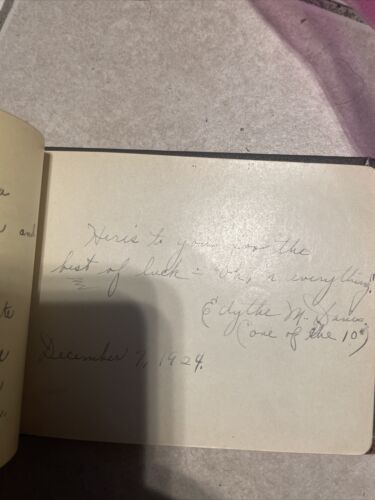 and
Here's to you for the
best of luck = 'n, 'n everything!
Edythe M.
(one of the 10*)
December 7, 1924.